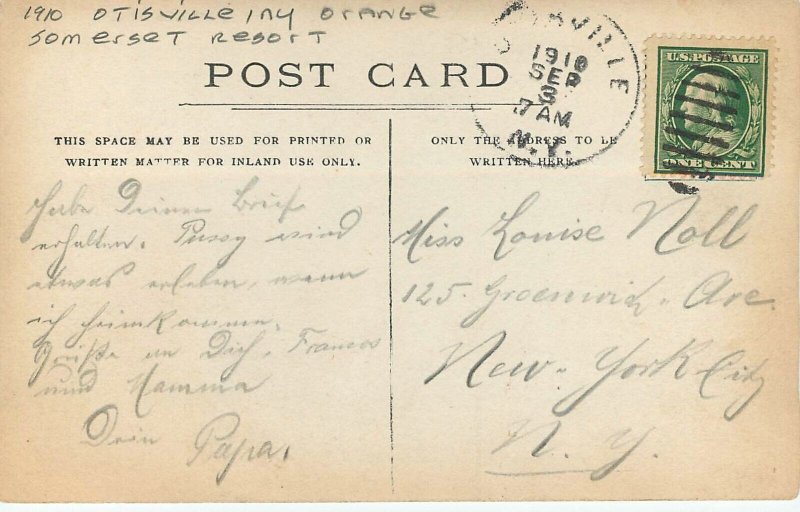 1910 Otisville, NY Orange
Somerset Resort
POST CARD
OTISVILLE
1910
SEP
3
7 AM
N.Y.
U.S. POSTAGE
ONE CENT
THIS SPACE MAY BE USED FOR PRINTED OR
WRITTEN MATTER FOR INLAND USE ONLY.
ONLY THE ADDRESS TO BE
WRITTEN HERE.
Habe Deinen Brief
erhalten. Pussy wird
etwas erleben, wenn
ich heimkomme.
Grüße an Dich, Frances
und Mamma
Dein Papa.
Miss Louise Noll
125. Greenwich. Ave.
New-York City
N. Y.